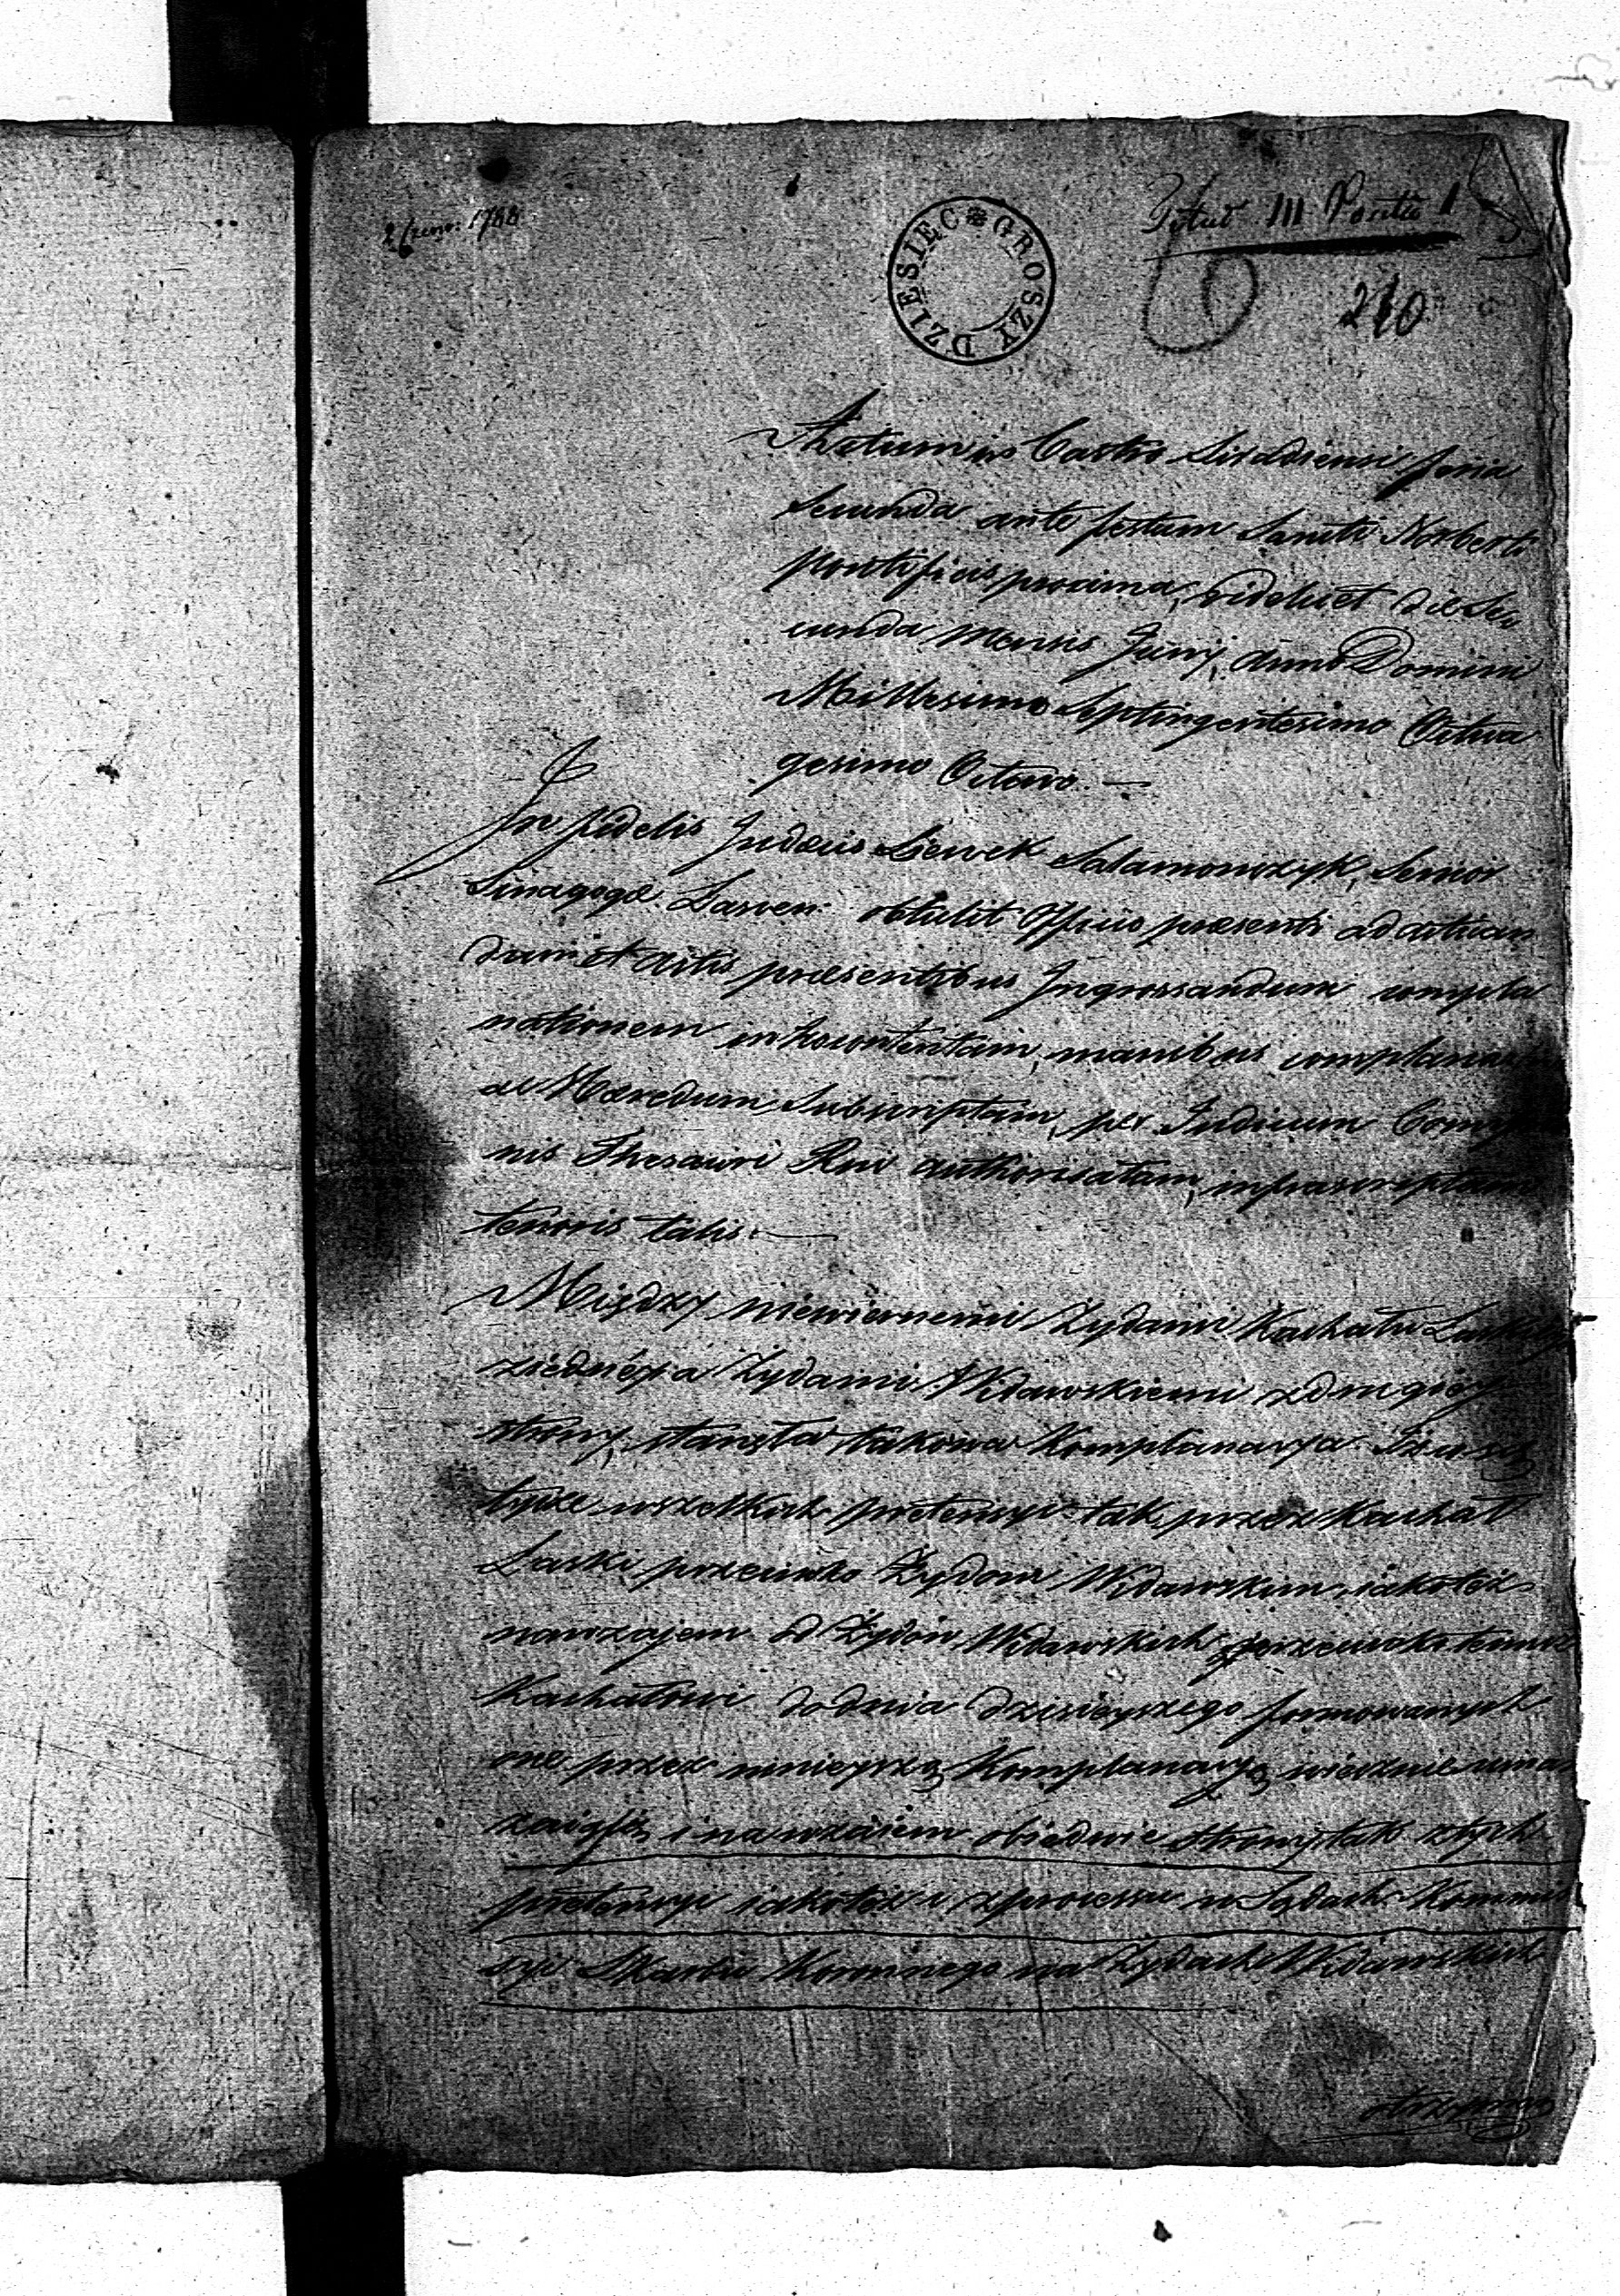 2 Czerw: 1788
DZIESIĘC GROSZY
Tituł III Portio 1
210
Actum in Castro Siradiensi feria
Secunda ante festum Sancti Norberti
Pontificis proxima, videlicet die Se
cunda Mensis Junij, anno Domini
Millesimo Septingentesimo Octua
gesimo Octavo. —
In fidelis Judæus Lewek Salamonczyk, Senior
Sinagogæ Lascen: obtulit Officio præsenti ad actican
dum et actis præsentibus Ingrossandum compla
nationem introcontentam, manibus
ac Hæredum Subscriptam, per Judicium
nis Thesauri Rni authorisatam, infrascriptam
tenoris talis. —
Między niewiernemi Żydami Kachału
ziednéy a Żydami Widawskiemi zdrugiéy
strony, stanęła takowa Komplanacya. Iż
tycze wszelkich pretensyi tak przez Kachał
Laski przeciwko Żydom Widawskim, iako też
nawzajem od Żydow Widawskich przeciwko temuż
Kachałowi do dnia dzisieyszego formowanych
one przez mnieyszą Komplanacyą wiecznie uma
zaią się i na wzaiem obiedwie strony tak z tych
pretensyi iako też i z processu w Sądach Kommis
syi Skarbu Koronnego na Żydach Widawskich